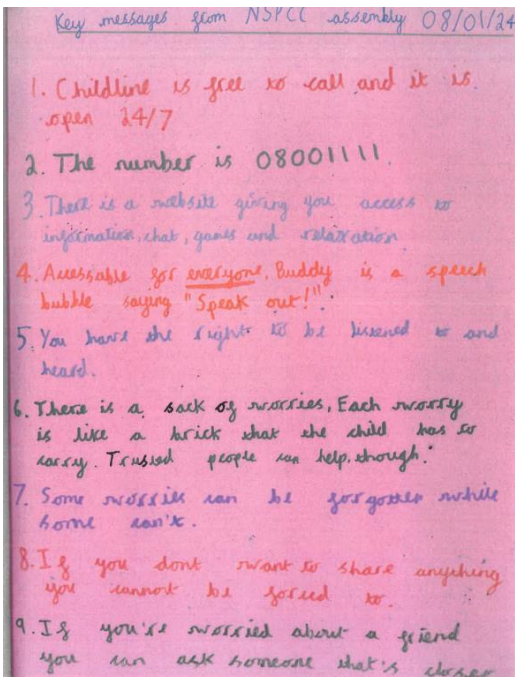 Key messages from NSPCC assembly 08/01/24
1. Childline is free to call and it is
open 24/7
2. The number is 08001111.
3. There is a website giving you access to
information, chat, games and relaxation
4. Acessable for everyone. Buddy is a speech
bubble saying "Speak out!".
5. You have the right to be listened to and
heard.
6. There is a sack of worries, Each worry
is like a brick that the child has to
carry. Trusted people can help, though.
7. Some worries can be forgotten while
some can't.
8. If you dont want to share anything
you cannot be forced to.
9. If you're worried about a friend
you can ask someone that's closer